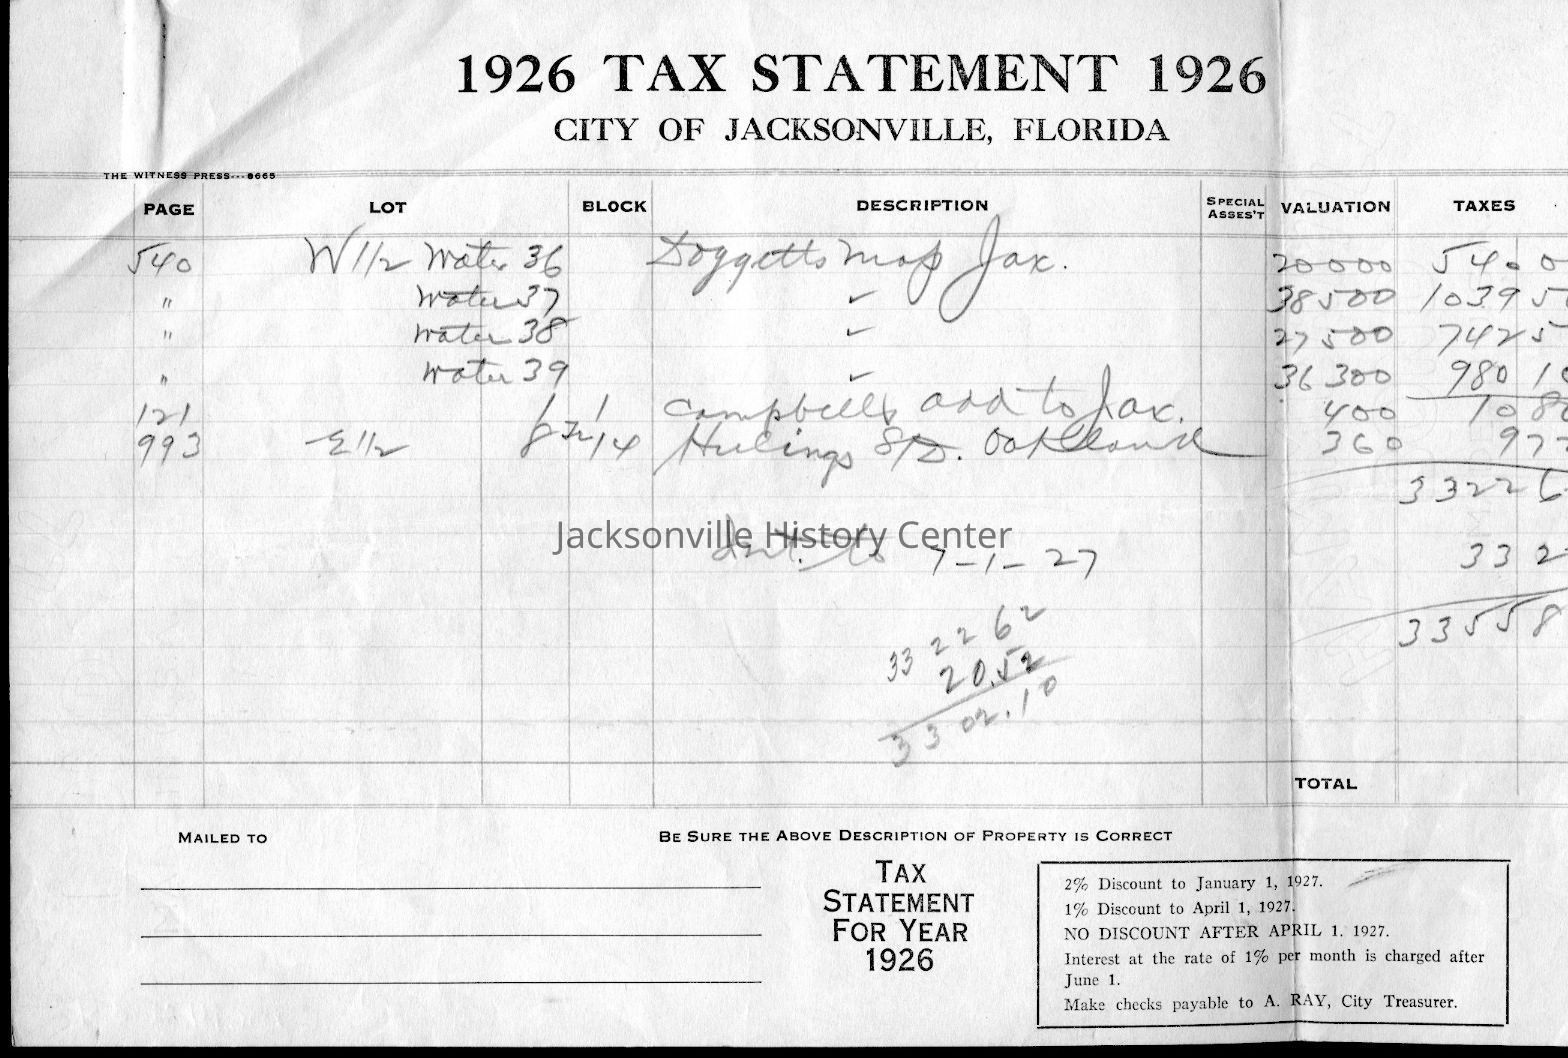 1926 TAX STATEMENT 1926
CITY OF JACKSONVILLE, FLORIDA
THE WITNESS PRESS---8665
PAGE LOT BLOCK DESCRIPTION SPECIAL ASSES'T VALUATION TAXES
540 W 1/2 Water 36 Doggetts Map Jax. 20000 540 0
" Water 37 ✓ 38500 1039 5
" Water 38 ✓ 27500 742 5
" Water 39 ✓ 36300 980 10
121 1 1 Campbells add to Jax. 400 10 80
993 E 1/2 8 14 Hulings S/D. Oakland 360 9 72
3322 6
Jacksonville History Center
Int. to 7-1-27 33 2
332262 3355 8
20.52
3302.10
TOTAL
MAILED TO BE SURE THE ABOVE DESCRIPTION OF PROPERTY IS CORRECT
TAX
STATEMENT
FOR YEAR
1926
2% Discount to January 1, 1927.
1% Discount to April 1, 1927.
NO DISCOUNT AFTER APRIL 1. 1927.
Interest at the rate of 1% per month is charged after
June 1.
Make checks payable to A. RAY, City Treasurer.